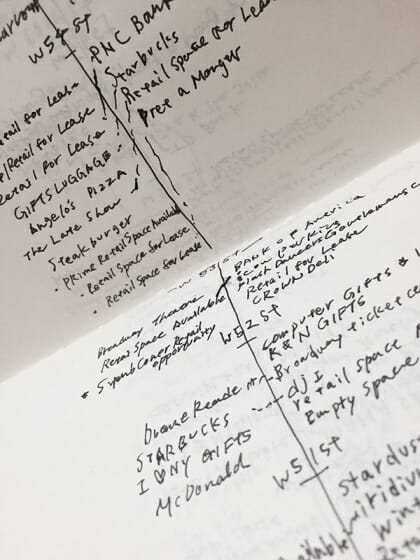 W 54 St
PNC Bank
Starbucks
Retail Space for Lease
Pret a Manger
Retail for Lease
Retail for Lease
Retail for Lease
GIFTS LUGGAGE
Angelo's PIZZA
The Late Show
Steak burger
Prime Retail Space Available
Retail Space for Lease
Retail Space for Lease
W 53 St
BANK OF America
Retail for Lease
CROWN Deli
Broadway Theatre
Retail Space Available
Retail
opportunity
W 52 St
Computer Gifts &
K & N GIFTS
Broadway ticket ce
dj I
retail space
Empty space
Duane Reade
STARBUCKS
I ♡ NY GIFTS
McDonald
W 51 St
Stardus
iridiu
Wint